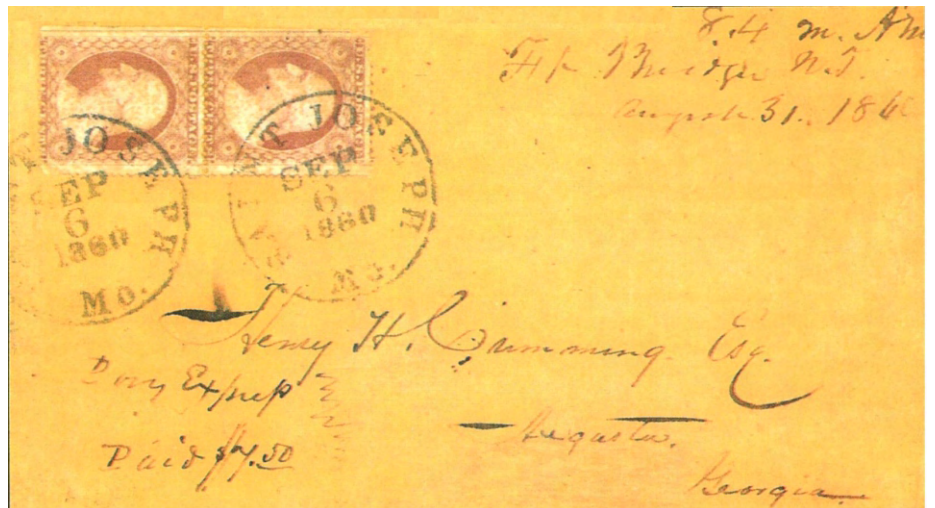 8.4 m. AM
Ft Bridger N.T.
August 31. 186
SAINT JOSEPH
SEP
6
1860
Mo.
JOSEPH
SEP
6
1860
Mo.
Henry H. Cumming. Esq.
Pony Express
Augusta.
Paid $7.50
Georgia